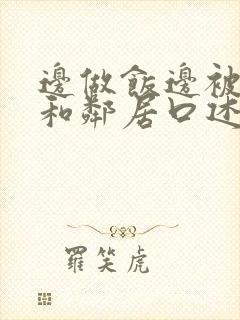 邊做飯邊被
和鄰居口述
羅笑虎